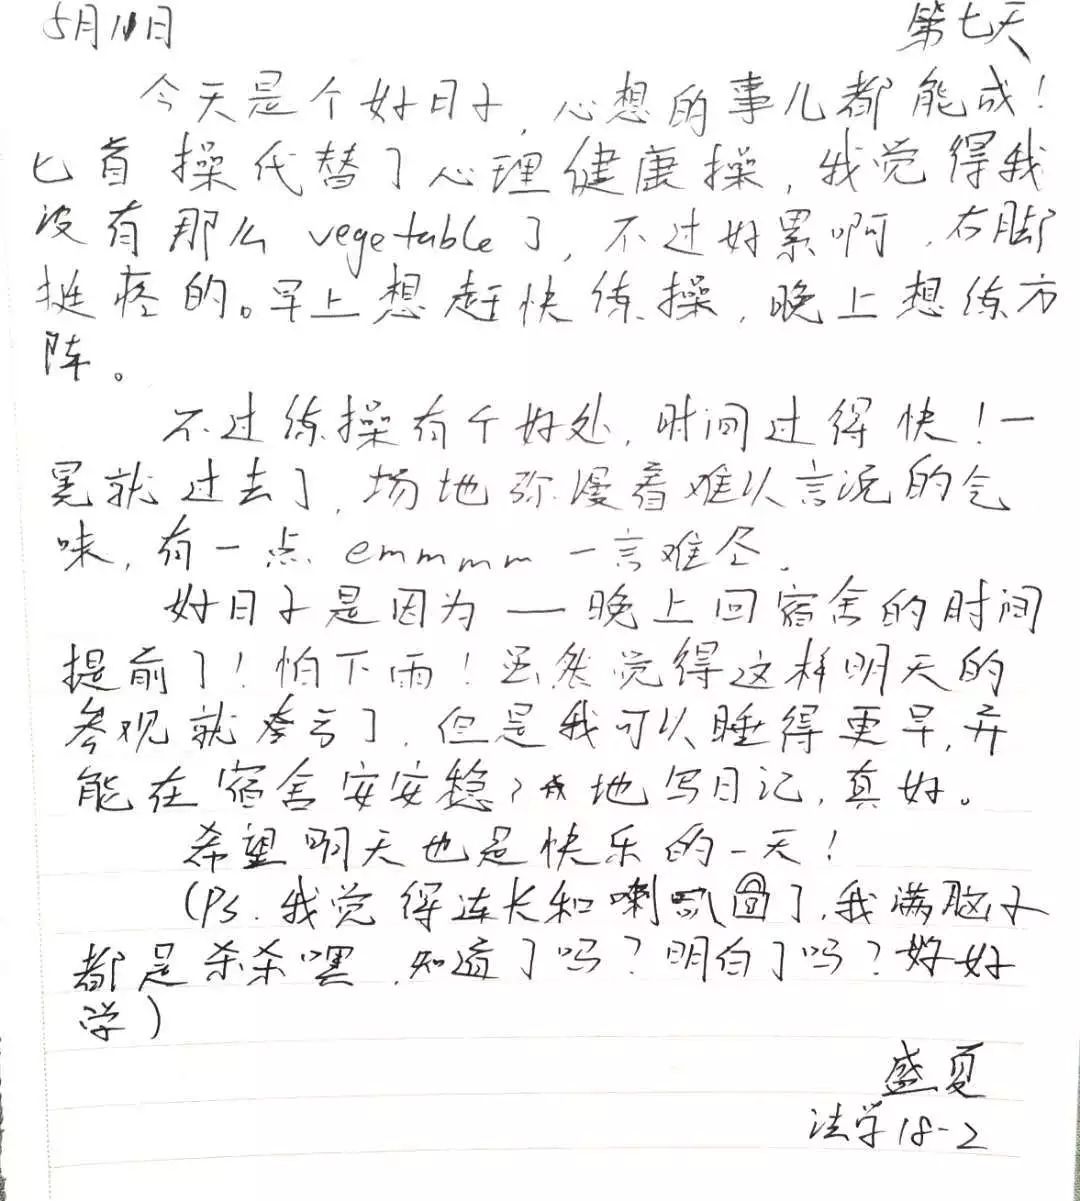 5月11日 第七天
今天是个好日子,心想的事儿都能成!
匕首操代替了心理健康操,我觉得我
没有那么vegetable了,不过好累啊,右脚
挺疼的。早上想赶快练操,晚上想练方
阵。
不过练操有个好处,时间过得快!一
晃就过去了,场地弥漫着难以言说的气
味,有一点emmmm一言难尽.
好日子是因为—晚上回宿舍的时间
提前了!怕下雨!虽然觉得这样明天的
参观就吃亏了,但是我可以睡得更早,并
能在宿舍安安稳稳地写日记,真好。
希望明天也是快乐的一天!
(Ps.我觉得连长和喇叭圆了,我满脑子
都是杀杀嘿,知道了吗?明白了吗?好好
学)
盛夏
法学18-2